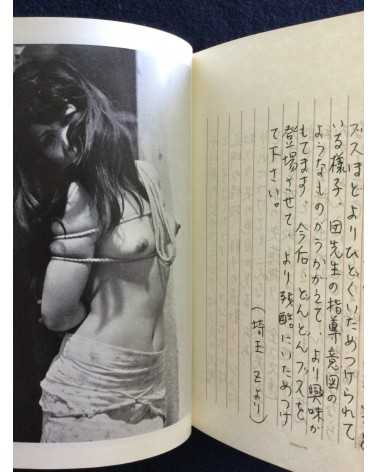 ブスほどよりひどくいためつけられて
いる様子、団先生の指導意図の
ようなものがうかがえて、より興味が
もてます、今后、どんどんブスを
登場させて、より残酷にいためつけ
て下さい。
（埼玉 Zより）